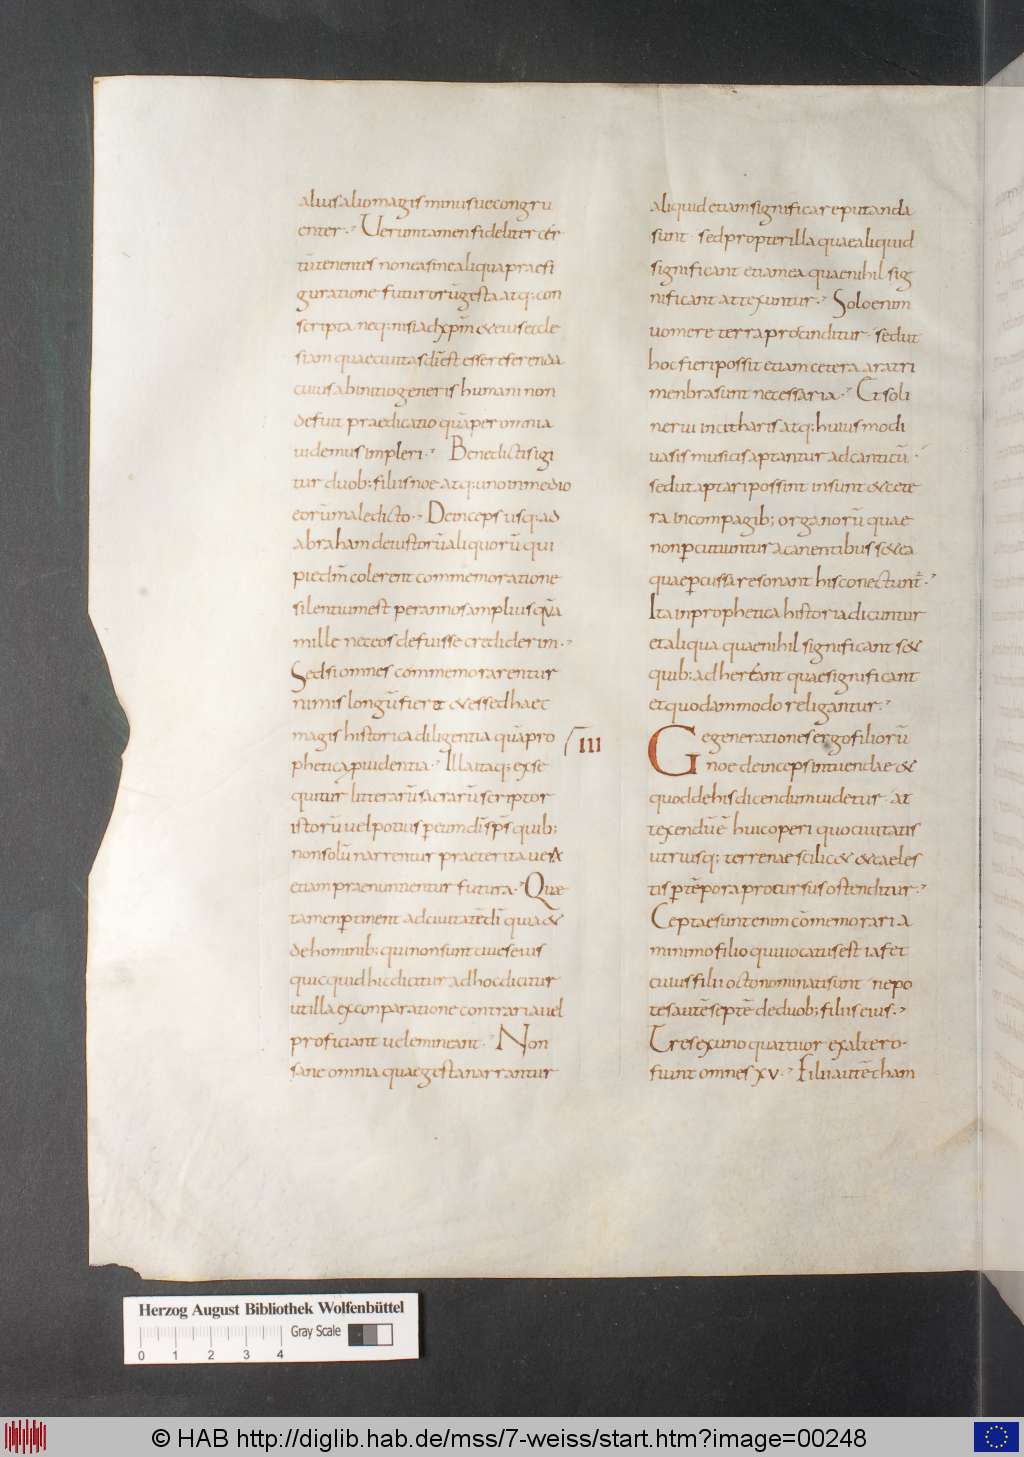 alius alio magis minusve congru
enter. Veruntamen fideliter cer
tū tenentes non ea sine aliqua praefi
guratione futurorū gesta atq; con
scripta neq; nisi ad xp̄m & eius eccle
siam quae civitas dī est esse referenda
cuius ab initio generis humani non
defuit praedicatio quā per omnia
videmus impleri. Benedictis igi
tur duob; filiis noe atq; uno in medio
eorū maledicto. Deinceps usq; ad
abraham de iustorū aliquorū qui
pie dm̄ colerent commemoratione
silentium est per annos amplius quā
mille nec eos defuisse crediderim.
Sed si omnes commemorarentur
nimis longū fieret & esset haec
magis historica diligentia quā pro
phetica providentia. Illa itaq; exse
quitur litterarū sacrarū scriptor
istorū vel potius per eum dī sp̄s quib;
non solū narrentur praeterita verū
etiam praenuntientur futura. Quae
tamen pertinent ad civitatē dī quia &
de hominib; qui non sunt cives eius
quicquid hic dicitur ad hoc dicitur
ut illa ex conparatione contraria vel
proficiant vel emineant. Non
sane omnia quae gesta narrantur
aliquid etiam significare putanda
sunt sed propter illa quae aliquid
significant etiam ea quae nihil sig
nificant attexuntur. Solo enim
vomere terra proscinditur sed ut
hoc fieri possit etiam cetera aratri
menbra sunt necessaria. Et soli
nervi in citharis atq; huius modi
vasis musicis aptantur ad canticū
sed ut aptari possint insunt & cete
ra in compagib; organorū quae
non percutiuntur a canentibus s& ea
quae percussa resonant his conectunt̄.
Ita in prophetica historia dicuntur
et aliqua quae nihil significant s&
quib; adhereant quae significant
et quodam modo religantur.
III
Gegenerationes ergo filiorū
noe deinceps intuendae &
quod de his dicendum videtur at
texendū ē huic operi quo civitatis
utriusq; terrenae scilic& & caeles
tis per tēpora procursus ostenditur.
Ceptae sunt enim cōmemorari a
minimo filio qui vocatus est iafet
cuius filii octo nominati sunt nepo
tes autē septē de duob; filiis eius.
Tres ex uno quattuor ex altero
fiunt omnes xv. Filii autē cham
Herzog August Bibliothek Wolfenbüttel
Gray Scale
0 1 2 3 4
© HAB http://diglib.hab.de/mss/7-weiss/start.htm?image=00248